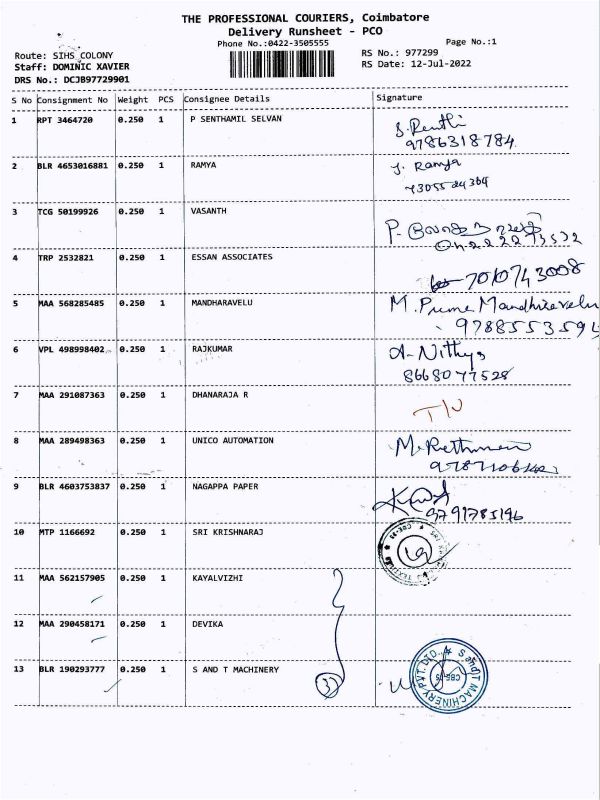 THE PROFESSIONAL COURIERS, Coimbatore
Delivery Runsheet - PCO
Phone No.:0422-3505555
Page No.:1
Route: SIHS COLONY
RS No.: 977299
Staff: DOMINIC XAVIER
RS Date: 12-Jul-2022
DRS No.: DCJB97729901
S No Consignment No Weight PCS Consignee Details Signature
1 RPT 3464720 0.250 1 P SENTHAMIL SELVAN
9786318784
2 BLR 4653016881 0.250 1 RAMYA
J. Ramya
3 TCG 50199926 0.250 1 VASANTH
4 TRP 2532821 0.250 1 ESSAN ASSOCIATES
7010743008
5 MAA 568285485 0.250 1 MANDHARAVELU
M. Mandhiravelu
6 VPL 498998402 0.250 1 RAJKUMAR
A. Nithya
8668077528
7 MAA 291087363 0.250 1 DHANARAJA R
8 MAA 289498363 0.250 1 UNICO AUTOMATION
9 BLR 4603753837 0.250 1 NAGAPPA PAPER
9791785196
10 MTP 1166692 0.250 1 SRI KRISHNARAJ
11 MAA 562157905 0.250 1 KAYALVIZHI
12 MAA 290458171 0.250 1 DEVIKA
13 BLR 190293777 0.250 1 S AND T MACHINERY
3
S and T MACHINERY PVT. LTD.